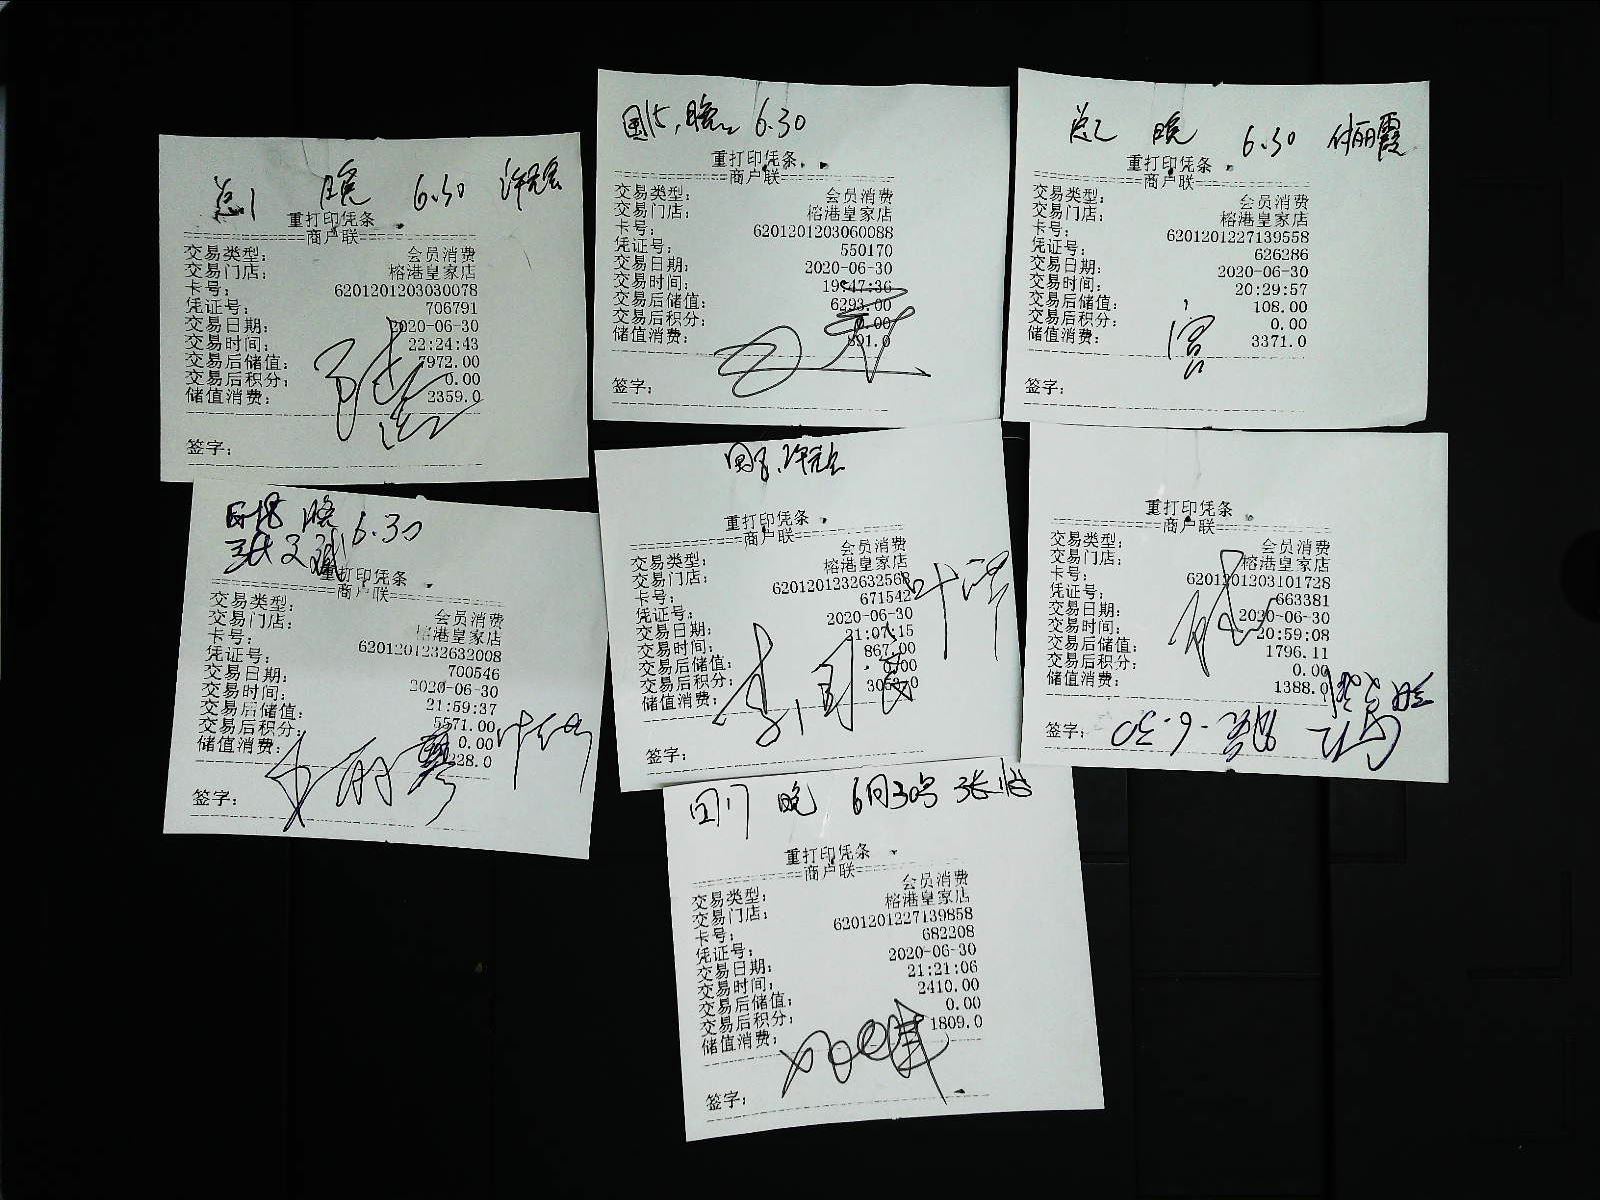 总1 晚 6.30
重打印凭条
商户联
交易类型: 会员消费
交易门店: 榕港皇家店
卡号: 6201201203030078
凭证号: 706791
交易日期: 2020-06-30
交易时间: 22:24:43
交易后储值: 7972.00
交易后积分: 0.00
储值消费: 2359.0
签字:
晚 6.30
重打印凭条
商户联
交易类型: 会员消费
交易门店: 榕港皇家店
卡号: 6201201203060088
凭证号: 550170
交易日期: 2020-06-30
交易时间: 19:47:36
交易后储值: 6293.00
交易后积分: 0.00
储值消费: 891.0
签字:
总2 晚 6.30 付丽霞
重打印凭条
商户联
交易类型: 会员消费
交易门店: 榕港皇家店
卡号: 6201201227139558
凭证号: 626286
交易日期: 2020-06-30
交易时间: 20:29:57
交易后储值: 108.00
交易后积分: 0.00
储值消费: 3371.0
签字:
晚 6.30
张文斌
重打印凭条
商户联
交易类型: 会员消费
交易门店: 榕港皇家店
卡号: 6201201232632008
凭证号: 700546
交易日期: 2020-06-30
交易时间: 21:59:37
交易后储值: 5571.00
交易后积分: 0.00
储值消费:
签字:
重打印凭条
商户联
交易类型: 会员消费
交易门店: 榕港皇家店
卡号: 6201201232632568
凭证号: 671542
交易日期: 2020-06-30
交易时间: 21:07:15
交易后储值: 867.00
交易后积分: 0.00
储值消费:
签字:
重打印凭条
商户联
交易类型: 会员消费
交易门店: 榕港皇家店
卡号: 6201201203101728
凭证号: 663381
交易日期: 2020-06-30
交易时间: 20:59:08
交易后储值: 1796.11
交易后积分: 0.00
储值消费: 1388.0
签字: 晚 6.30
晚 6月30号 张怡
重打印凭条
商户联
交易类型: 会员消费
交易门店: 榕港皇家店
卡号: 6201201227139858
凭证号: 682208
交易日期: 2020-06-30
交易时间: 21:21:06
交易后储值: 2410.00
交易后积分: 0.00
储值消费: 1809.0
签字: